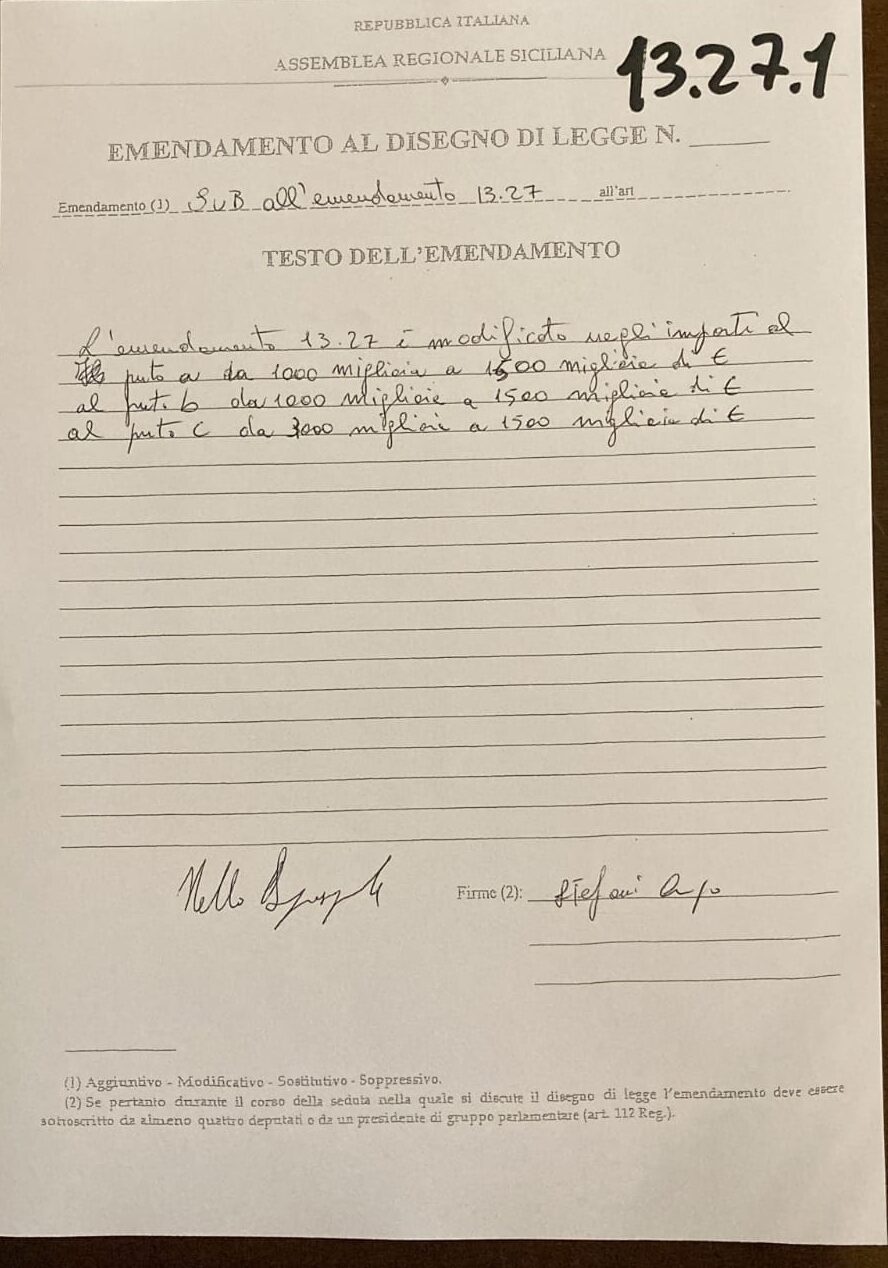 REPUBBLICA ITALIANA
ASSEMBLEA REGIONALE SICILIANA
13.27.1
EMENDAMENTO AL DISEGNO DI LEGGE N.
Emendamento (1) SUB all'emendamento 13.27 all'art
TESTO DELL'EMENDAMENTO
L'emendamento 13.27 è modificato negli importi al
puto a da 1000 migliaia a 1500 migliaia di €
al puto b da 1000 migliaia a 1500 migliaia di €
al puto C da 3000 migliaia a 1500 migliaia di €
Nello
Firme (2): Stefani
(1) Aggiuntivo - Modificativo - Sostitutivo - Soppressivo.
(2) Se pertanto durante il corso della seduta nella quale si discute il disegno di legge l'emendamento deve essere
sottoscritto da almeno quattro deputati o da un presidente di gruppo parlamentare (art. 112 Reg.).